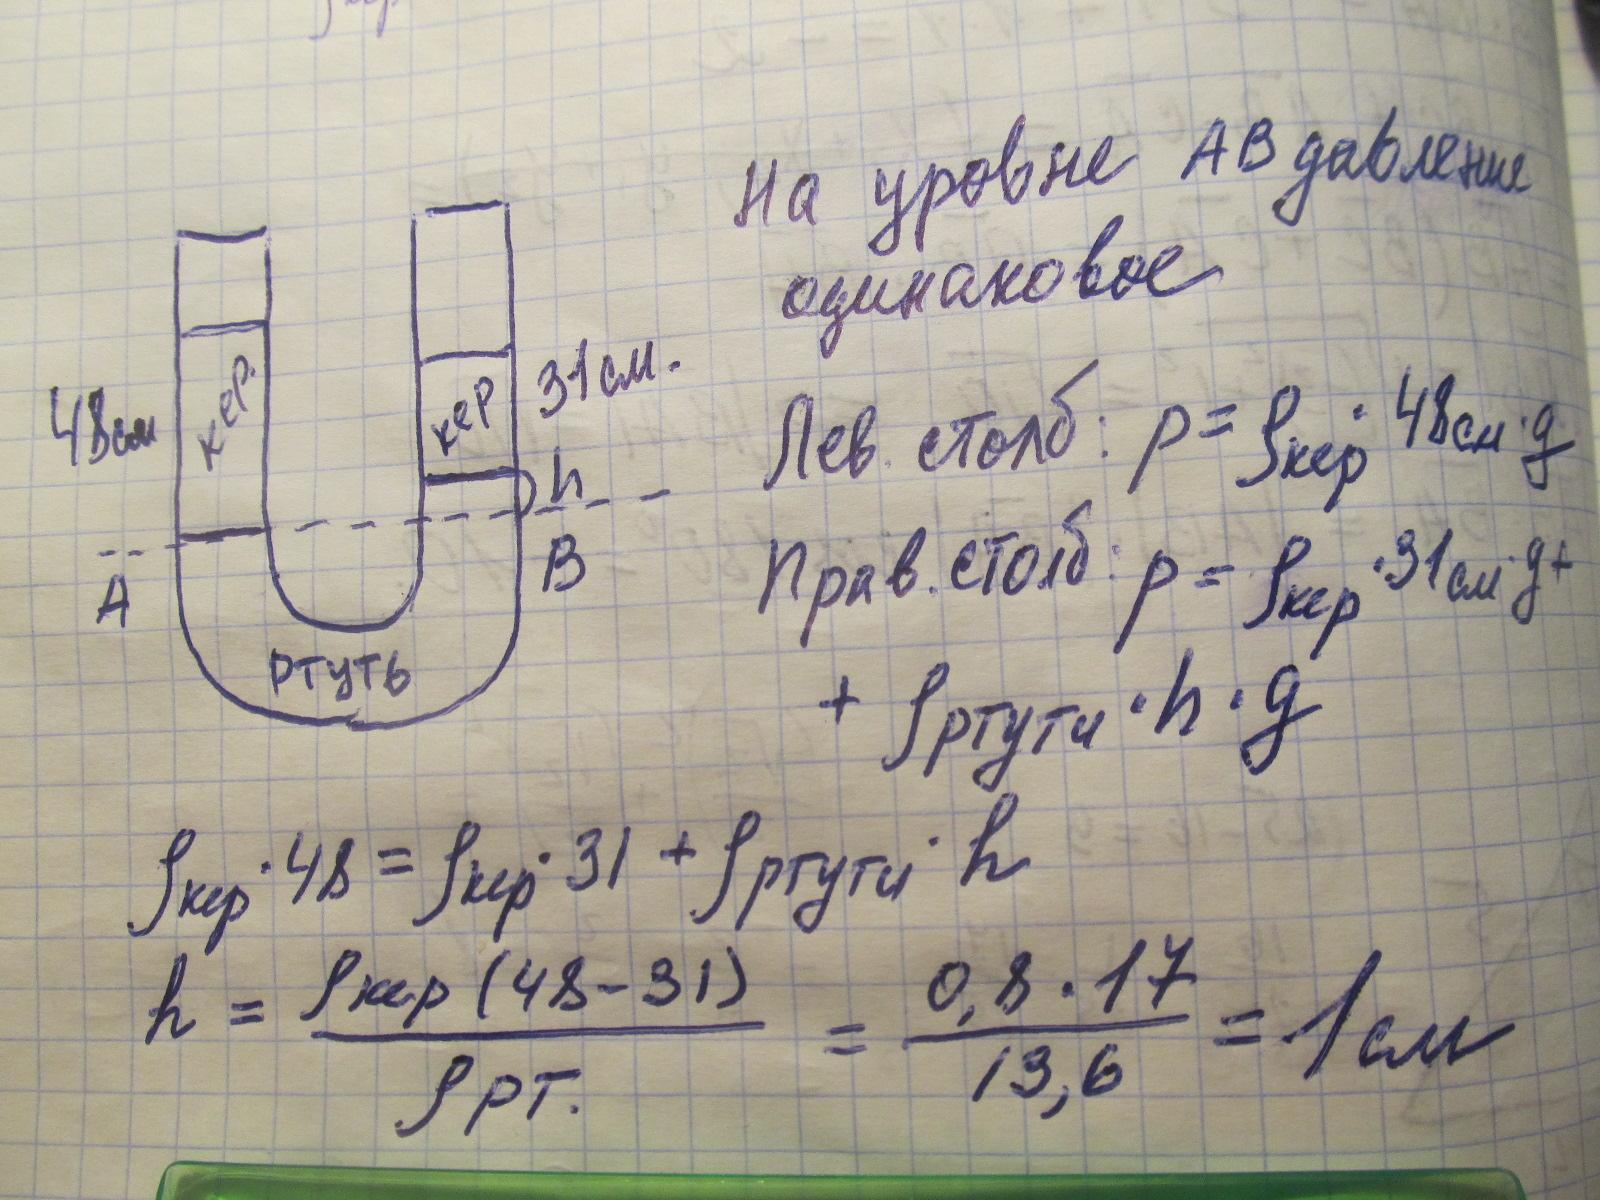 На уровне АВ давление
одинаковое
48см
кер.
кер
31см.
h
А
В
ртуть
Лев. столб: p = ρкер · 48см · g
Прав. столб: p = ρкер · 31см · g +
+ ρртути · h · g
ρкер · 48 = ρкер · 31 + ρртути · h
h = ρкер (48 - 31) / ρрт. = 0,8 · 17 / 13,6 = 1 см